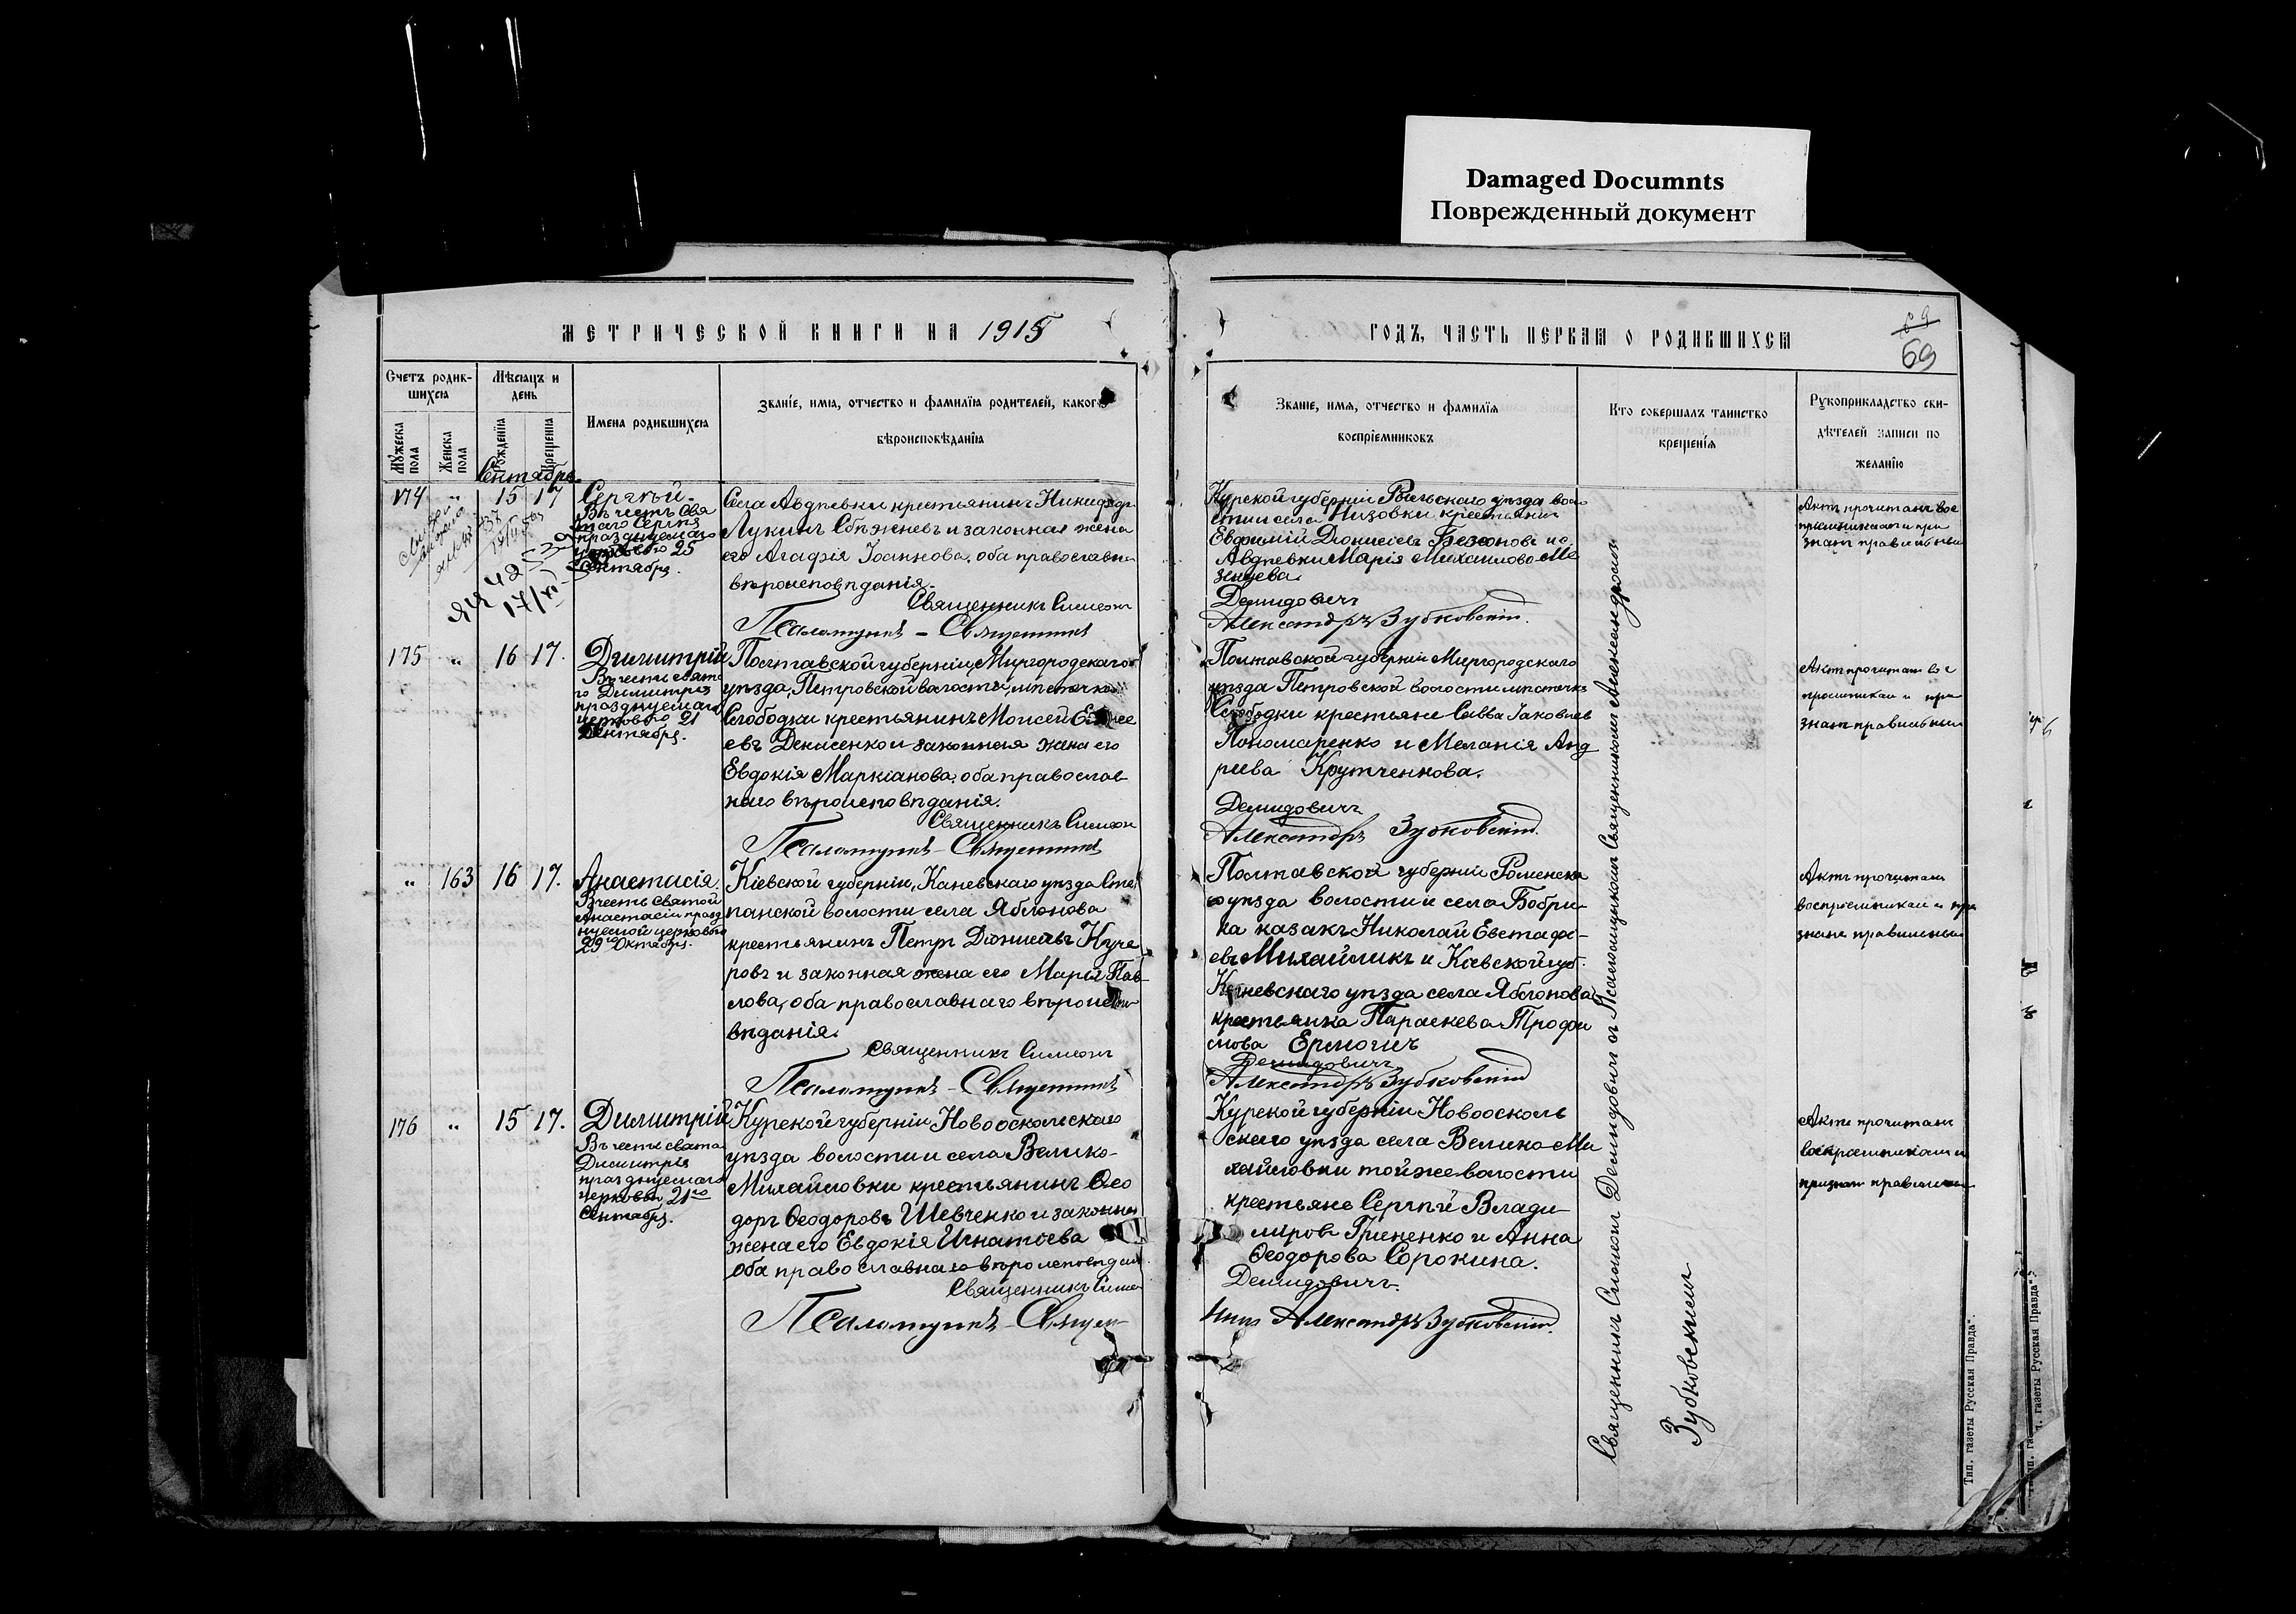 Damaged Documnts
Поврежденный документ
МЕТРИЧЕСКОЙ КНИГИ НА 1915
ГОДЪ, ЧАСТЬ ПЕРВАЯ О РОДИВШИХСЯ
69
69
Счетъ родив-
шихся
Мужеска пола
Женска пола
Мѣсяцъ и
день
Рожденія
Крещенія
Имена родившихся
Званіе, имя, отчество и фамилія родителей, какого
вѣроисповѣданія
Званіе, имя, отчество и фамилія
воспріемниковъ
Кто совершалъ таинство
крещенія
Рукоприкладство сви-
дѣтелей записи по
желанію
Сентябрь
174 " 15 17
Сергѣй
Въ честь Свя
таго Сергѣя
празднуемаго
церковью 25
Сентября.
Села Авдѣевки крестьянинъ Никифоръ
Лукинъ Сбѣженевъ и законная жена
его Агафія Іоаннова, оба православна
вѣроисповѣданія.
Священникъ Симеонъ
Псаломщикъ - Священникъ
Курской губерніи Рыльскаго уѣзда воло
сти и села Низовки крестьянин
Евфимій Діонисіевъ и с.
Авдѣевки Марія Михаилова Ме
зенцева.
Демидовичъ
Александръ Зубковскій.
Актъ прочитанъ вос
пріемникам и при
знанъ правильным
175 " 16 17.
Димитрій
Въ честь свята
го Димитрія
празднуемаго
церковью 21
Сентября.
Полтавской губерніи Миргородскаго
уѣзда, Петровской волости, мѣстечка
Слободки крестьянинъ Моисей
евъ Денисенко и законная жена его
Евдокія Маркіанова, оба православ
наго вѣроисповѣданія.
Священникъ Симеон
Псаломщикъ - Священникъ
Полтавской губерніи Миргородскаго
уѣзда Петровской волости мѣстечка
Слободки крестьяне Савва Іаковлев
Пономаренко и Меланія Анд
реева Крутченкова.
Демидовичъ
Александръ Зубковскій.
Актъ прочитанъ вос
пріемникам и при
знанъ правильным
" 163 16 17.
Анастасія.
В честь Святой
Анастасіи празд
нуемой церковью
29го Октября.
Кіевской губерніи, Каневскаго уѣзда Сте
панской волости села Яблонова
крестьянинъ Петръ Діонисіевъ Куче
ровъ и законная жена его Марія Пав
лова, оба православнаго вѣроиспо
вѣданія.
Священникъ Симеонъ
Псаломщикъ - Священникъ
Полтавской губерніи Роменска
го уѣзда волости и села Бобри
ка казакъ Николай Евстафі-
евъ Михайликъ и Кіевской губ.
Каневскаго уѣзда села Яблонова
крестьянка Параскева Трофи
мова
Демидовичъ
Александръ Зубковскій
Актъ прочитанъ
воспріемникам и при
знанъ правильным
176 " 15 17.
Димитрій
Въ честь свята
Димитрія
празднуемаго
церковью 21го
Сентября.
Курской губерніи Новооскольскаго
уѣзда волости и села Велико-
Михайловки крестьянинъ Ѳео
доръ Ѳеодоровъ Шевченко и законная
жена его Евдокія Игнатьева
оба православнаго вѣроисповѣдан
Священникъ Симе
Псаломщикъ - Священ
Курской губерніи Новоосколь
скаго уѣзда села Велико-Ми
хайловки той же волости
крестьяне Сергѣй Влади
міровъ Гриненко и Анна
Ѳеодорова Сорокина.
Демидовичъ.
никъ Александръ Зубковскій.
Актъ прочитанъ
воспріемникам и
признанъ правильным
Священникъ Симеонъ Демидовичъ съ Псаломщикомъ Священникомъ Александромъ
Зубковскимъ
Тип. газеты Русская Правда".
Тип. газеты Русская Правда".